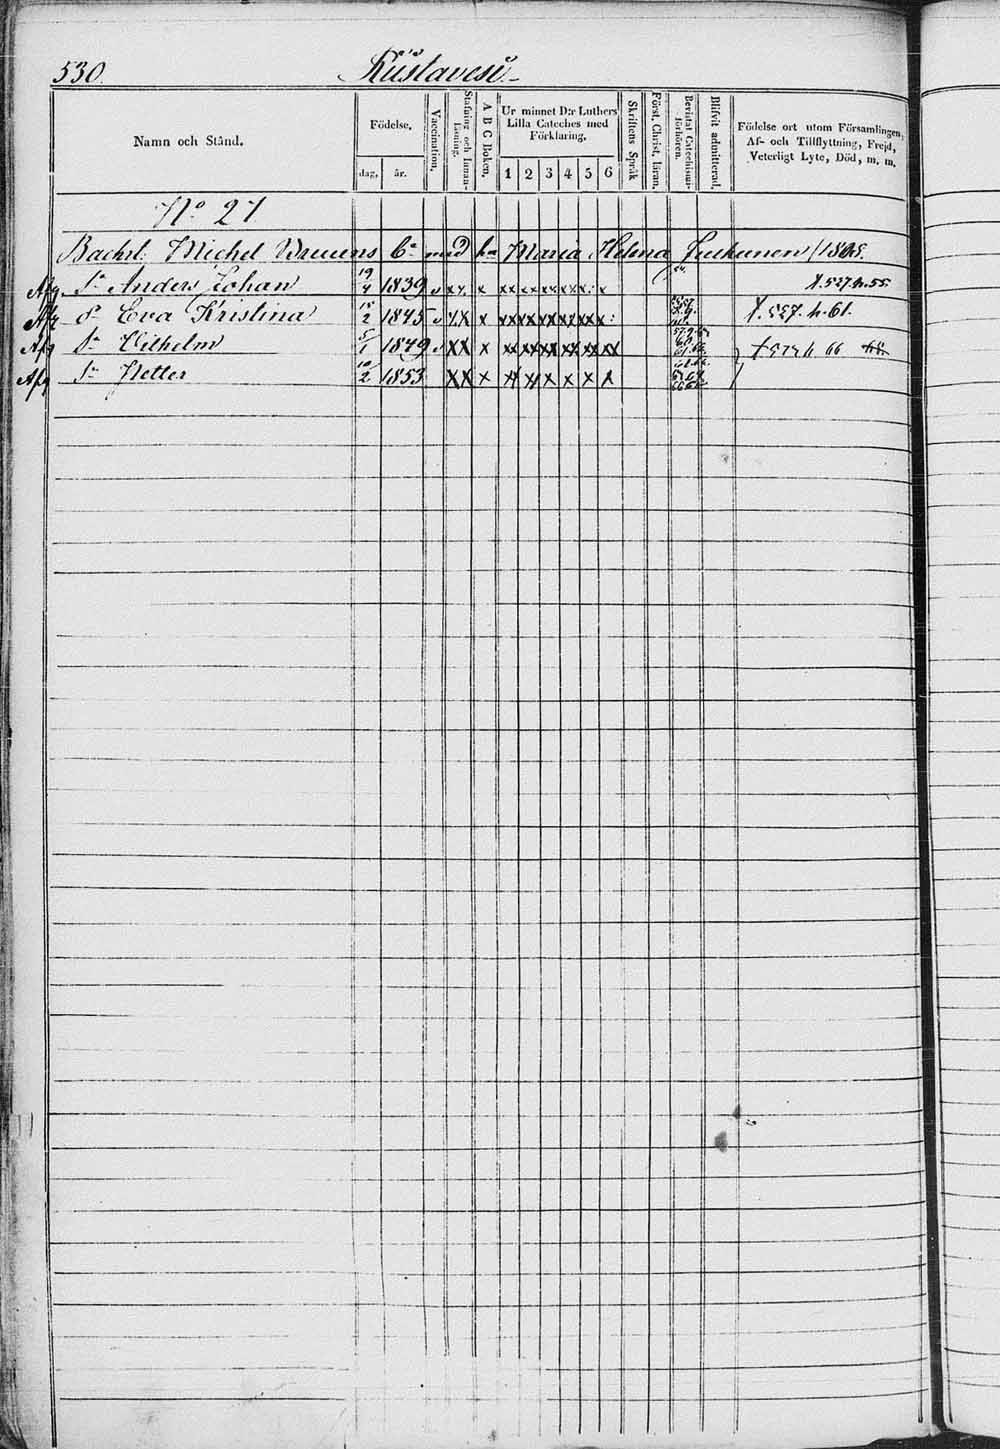 530. Kustavesi
Namn och Stånd.
Födelse.
dag. år.
Vaccination.
Stafning och Innanläsning.
A B C Boken.
Ur minnet D:r Luthers
Lilla Cateches med
Förklaring.
1 2 3 4 5 6
Skriftens Språk
Först. Christ. läran.
Bevistat Catechismiförhören.
Blifvit admitterad.
Födelse ort utom Församlingen,
Af- och Tillflyttning, Frejd,
Veterligt Lyte, Död, m. m.
No 21
Michel med Maria Helena
Afg Sn Anders Johan 19/4 1839 v xx x xx xx xx xx xx x X. 527. h. 55
Afg dr Eva Kristina 18/2 1845 v XX x xx xx xx xx xx x X. 557. h. 61.
Afg Sn Wilhelm 5/1 1849 v XX x xx xx xx xx xx xx h 66
Afg Sn Petter 10/2 1853 XX x x x x x x x